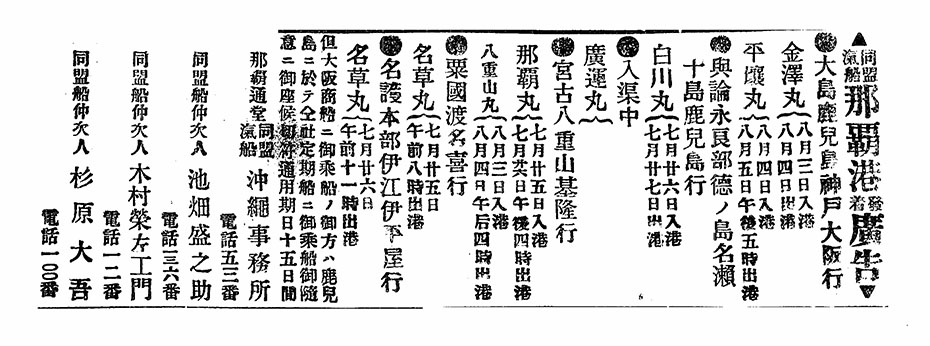 ▲同盟汽船那覇港發着廣告▼
●大島鹿兒島神戸大阪行
金澤丸 八月三日入港
八月四日出港
平壤丸 八月四日入港
八月五日午後五時出港
●與論永良部德ノ島名瀬
十島鹿兒島行
白川丸 七月廿六日入港
七月廿七日出港
●入渠中
廣運丸
●宮古八重山基隆行
那覇丸 七月廿五日入港
七月廿六日午後四時出港
八重山丸 八月三日入港
八月四日午后四時出港
●粟國渡名喜行
名草丸 七月廿五日
午前八時出港
●名護本部伊江伊平屋行
名草丸 七月廿六日
午前十一時出港
但大阪商船ニ御乘船ノ御方ハ鹿兒
島ニ於テ仝社定期船ニ御乘船御隨
意ニ御座候切符通用期日十五日間
那覇通堂 同盟汽船 沖繩事務所
電話五三番
同盟船仲次人 池畑盛之助
電話三六番
同盟船仲次人 木村榮左工門
電話一二番
同盟船仲次人 杉原大吾
電話一〇〇番